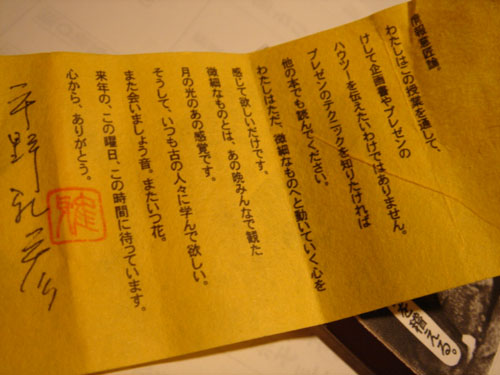 情報意匠論。
わたしはこの授業を通して、
けして企画書やプレゼンの
ハウツーを伝えたいわけではありません。
プレゼンのテクニックを知りたければ
他の本でも読んでください。
わたしはただ、微細なものへと動いていく心を
感じて欲しいだけです。
微細なものとは、あの晩みんなで観た
月の光のあの感覚です。
そうして、いつも古の人々に学んで欲しい。
また会いましょう音。またいつ花。
来年の、この曜日、この時間に待っています。
心から、ありがとう。
を揃える。